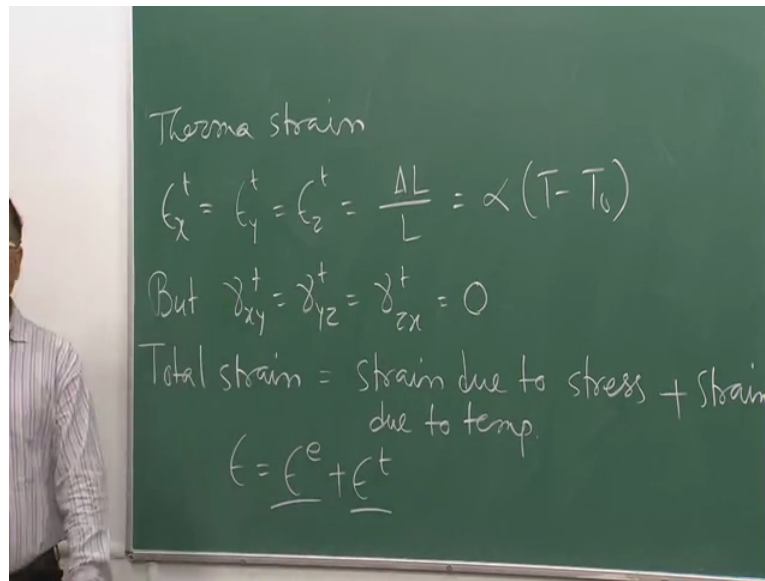 Therma strain
ϵₓᵗ = ϵᵧᵗ = ϵ_zᵗ = ΔL/L = α (T - T₀)
But γ_xyᵗ = γ_yzᵗ = γ_zxᵗ = 0
Total strain = strain due to stress + strain
due to temp.
ϵ = ϵᵉ + ϵᵗ